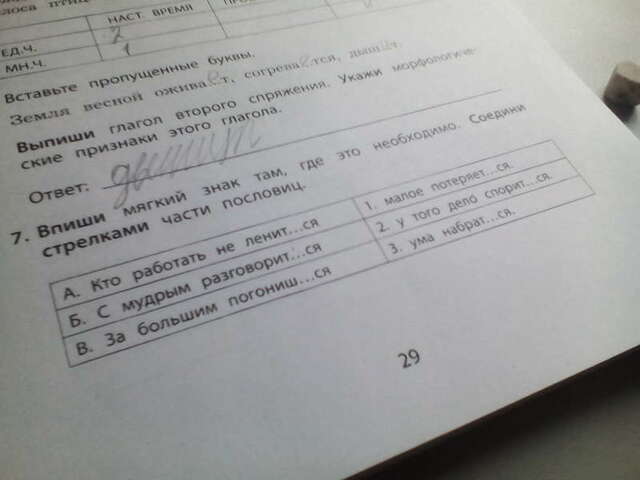 НАСТ. ВРЕМЯ
ЕД.Ч. 2
МН.Ч. 1
Вставьте пропущенные буквы.
Земля весной оживает, согревается, дышит.
Выпиши глагол второго спряжения. Укажи морфологиче-
ские признаки этого глагола.
Ответ: дышит
7. Впиши мягкий знак там, где это необходимо. Соедини
стрелками части пословиц.
А. Кто работать не ленит...ся
Б. С мудрым разговорит...ся
В. За большим погониш...ся
1. малое потеряет...ся.
2. у того дело спорит...ся.
3. ума набрат...ся.
29